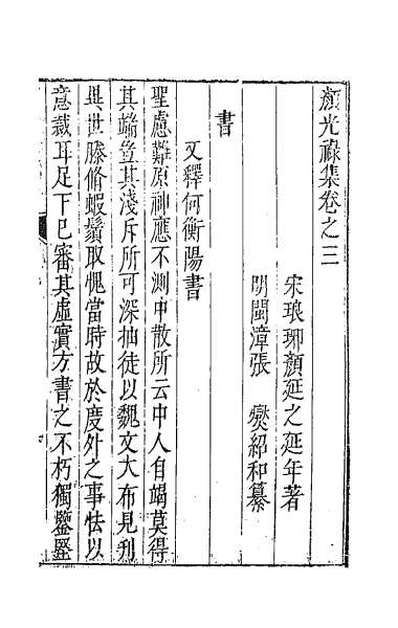 顏光祿集卷之三
宋琅琊顏延之延年著
明閩漳張 燮紹和纂
書
又釋何衡陽書
聖慮難原神應不測中散所云中人自竭莫得
其端豈其淺斥所可深抽徒以魏文大布見刋
異世滕脩蝦鬚取愧當時故於度外之事怯以
意裁耳足下已審其虛實方書之不朽獨鑒